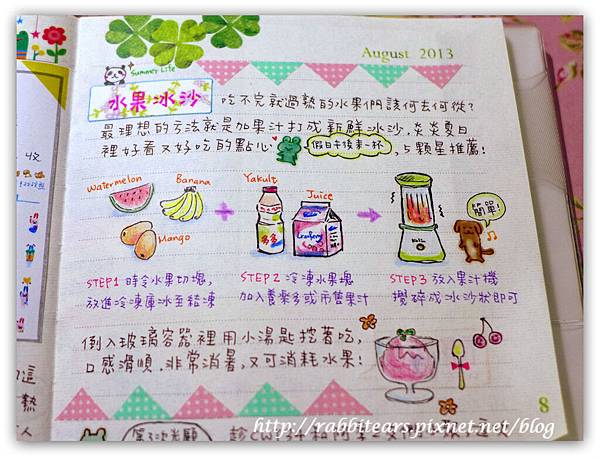 August 2013
Summer Life
水果冰沙
吃不完就過熟的水果們該何去何從?
最理想的方法就是加果汁打成新鮮冰沙,炎炎夏日
裡好看又好吃的點心
假日午後來一杯
,5顆星推薦!
Watermelon
Banana
Mango
Yakult
多多
Juice
簡單!
STEP1 時令水果切塊,
放進冷凍庫冰至結凍
STEP2 冷凍水果塊
加入養樂多或市售果汁
STEP3 放入果汁機
攪碎成冰沙狀即可
倒入玻璃容器裡用小湯匙挖著吃,
口感滑順、非常消暑,又可消耗水果!
8
收
熱
http://rabbitears.pixnet.net/blog